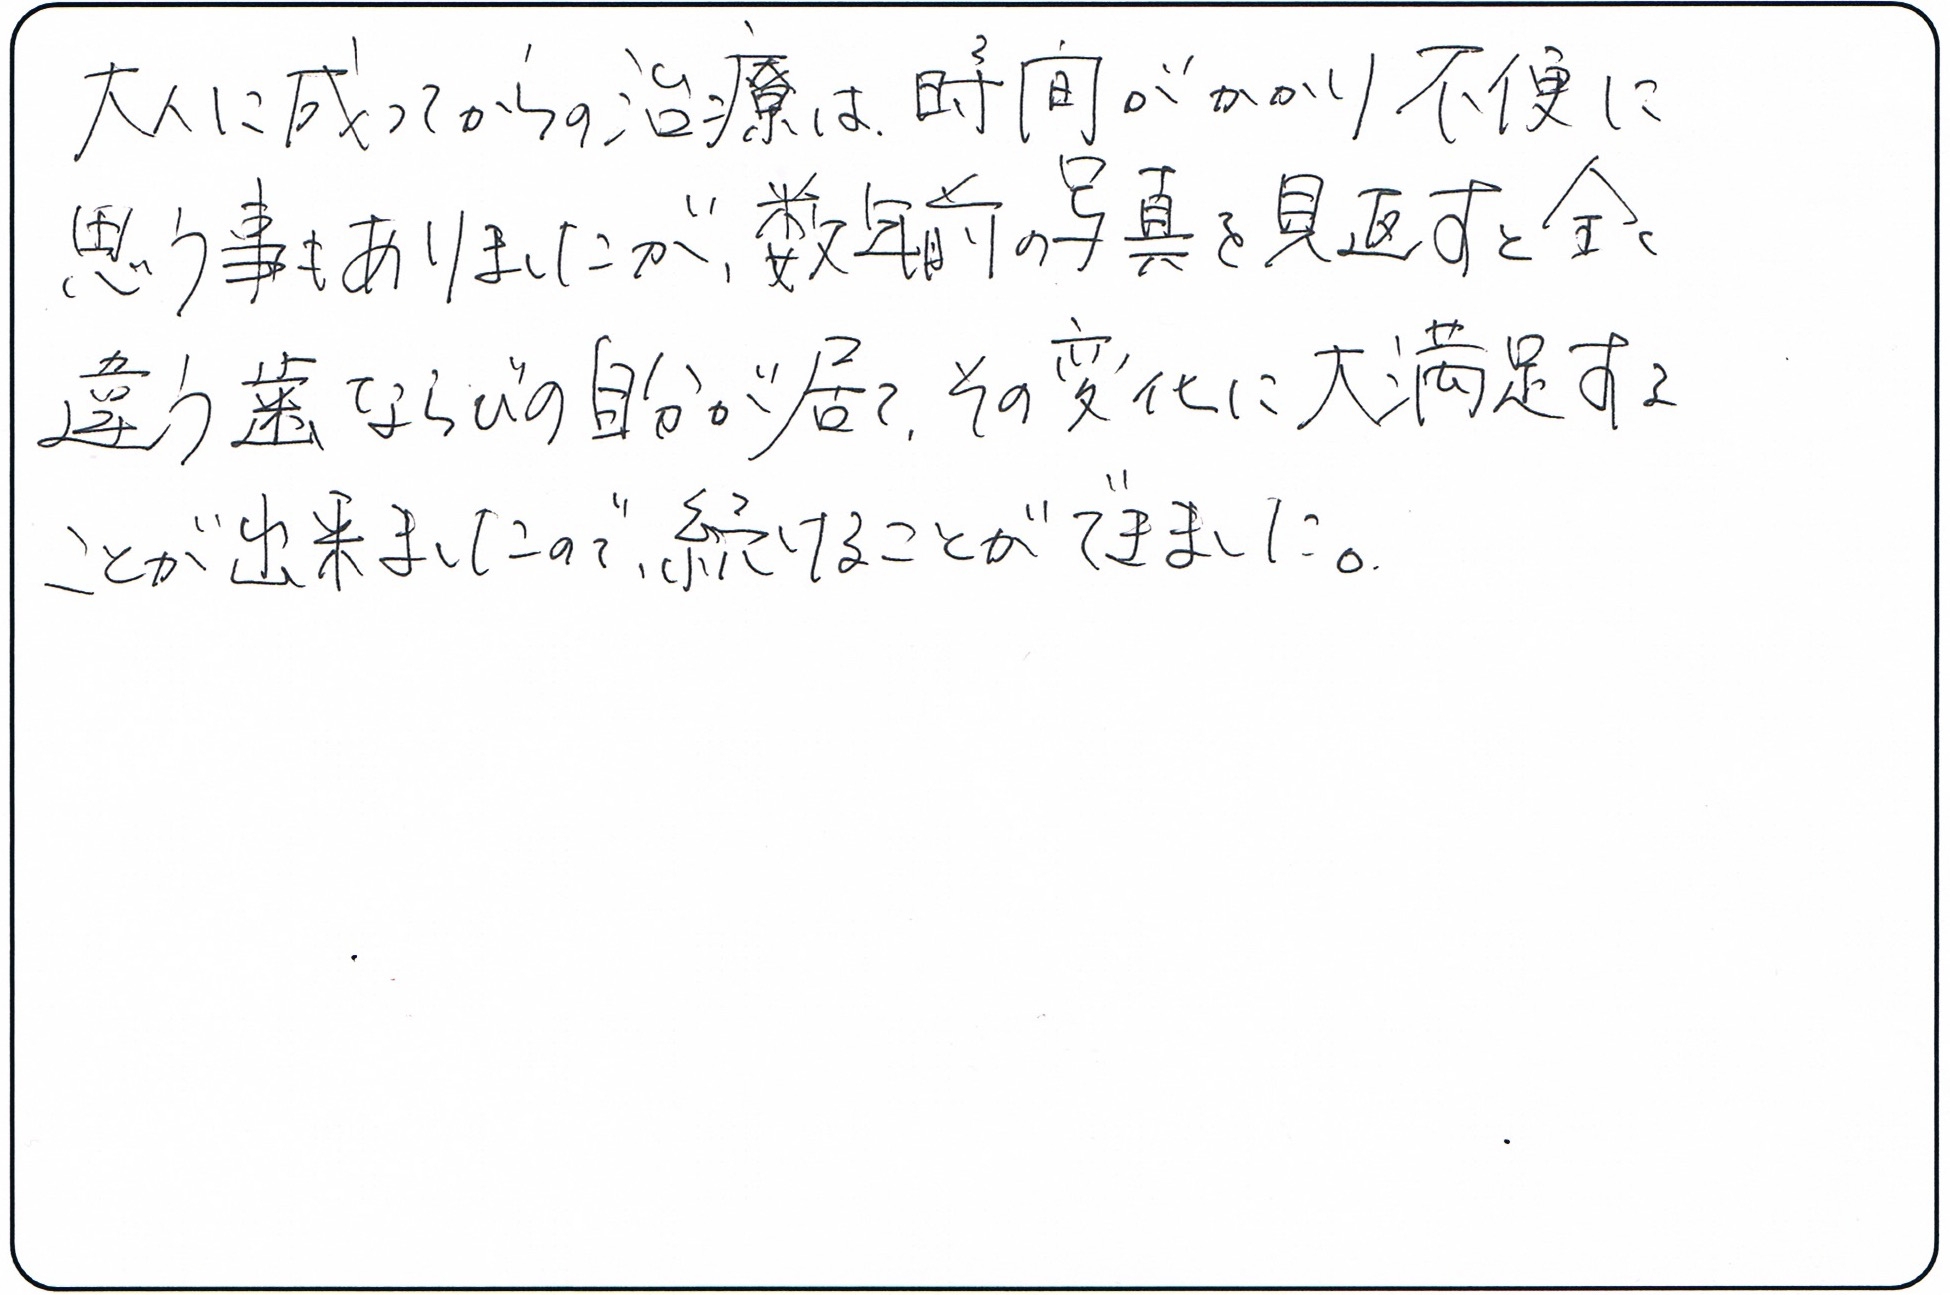 大人に成ってからの治療は、時間がかかり不便に
思う事もありましたが、数年前の写真を見返すと全く
違う歯ならびの自分が居て、その変化に大満足する
ことが出来ましたので、続けることができました。